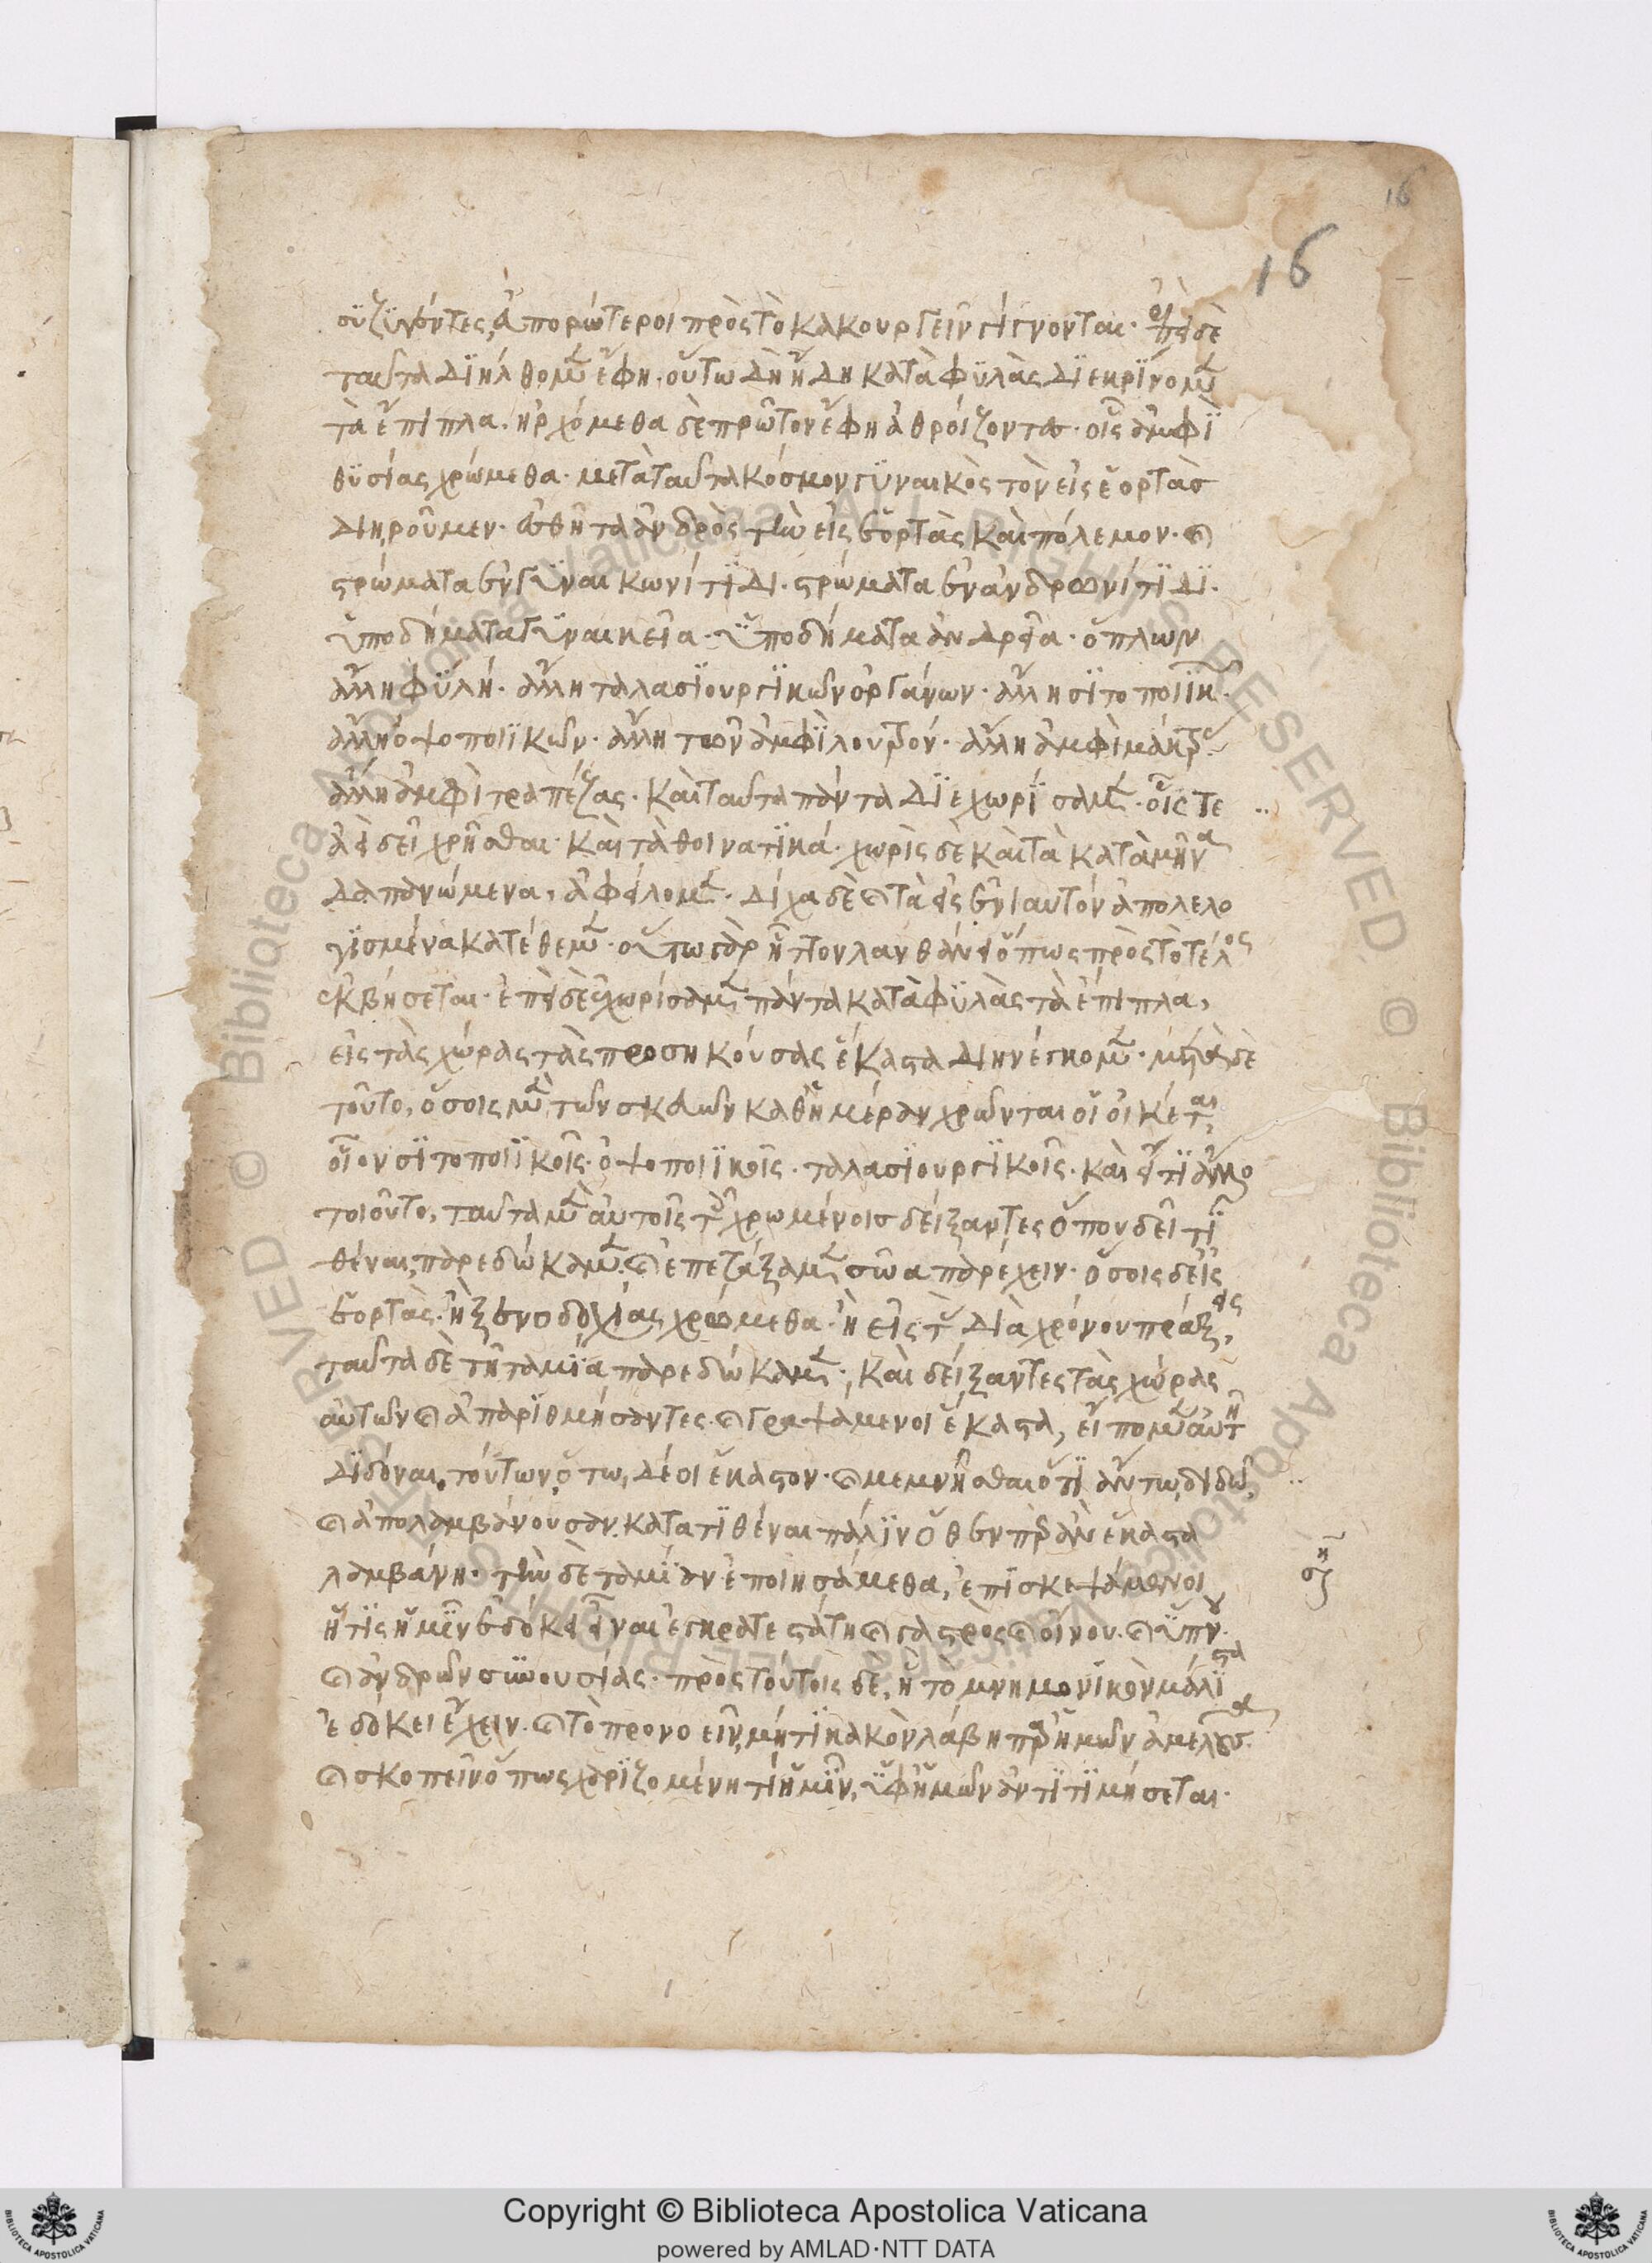 16
16
συζυγέντες, ἀπορώτεροι πρὸς τὸ κακουργεῖν γίγνονται· ἐπεὶ δὲ
ταῦτα διήλθομεν ἔφη· οὕτω δὴ ἤδη κατὰ φυλὰς διεκρίνομεν
τὰ ἔπιπλα. ἠρχόμεθα δὲ πρῶτον ἔφη ἀθροίζοντες· οἷς ἀμφὶ
θυσίας χρώμεθα· μετὰ ταῦτα κόσμον γυναικὸς τὸν εἰς ἑορτὰσ
διηροῦμεν· ἐσθῆτα ἀνδρὸς τὴν εἰς ἑορτὰς καὶ πόλεμον· καὶ
στρώματα ἐν γυναικωνίτιδι· στρώματα ἐν ἀνδρωνίτιδι·
ὑποδήματα γυναικεῖα· ὑποδήματα ἀνδρεῖα· ὅπλων
ἄλλη φυλή· ἄλλη ταλασιουργικῶν ὀργάνων· ἄλλη σιτοποιικῶν·
ἄλλη ὀψοποιικῶν· ἄλλη τῶν ἀμφὶ λουτρόν· ἄλλη ἀμφὶ μάκτρας·
ἄλλη ἀμφὶ τραπέζας· καὶ ταῦτα πάντα διεχωρίσαμεν· οἷς τε
ἀεὶ δεῖ χρῆσθαι· καὶ τὰ θοινατικά· χωρὶς δὲ καὶ τὰ κατὰ μῆνα
δαπανώμενα, ἀφείλομεν· δίχα δὲ καὶ τὰ εἰς ἐνιαυτὸν ἀπολελο
γισμένα κατέθεμεν· οὕτω γὰρ ἧττον λανθάνει ὅπως πρὸς τὸ τέλος
ἐκβήσεται· ἐπεὶ δὲ ἐχωρίσαμεν πάντα κατὰ φυλὰς τὰ ἔπιπλα,
εἰς τὰς χώρας τὰς προσηκούσας ἕκαστα διηνέγκομεν· μετὰ δὲ
τοῦτο, ὅσοις μὲν τῶν σκευῶν καθημέραν χρῶνται οἱ οἰκέται,
οἷον σιτοποιικοῖς· ὀψοποιικοῖς· ταλασιουργικοῖς· καὶ εἴ τι ἄλλο
τοιοῦτο, ταῦτα μὲν αὐτοῖς τοῖς χρωμένοισ δείξαντες ὅπου δεῖ τι
θέναι, παρεδώκαμεν· καὶ ἐπετάξαμεν σῶα παρέχειν· ὅσοις δ' εἰς
ἑορτὰς· ἢ ξενοδοχίας χρώμεθα· ἢ εἰς τὰς διὰ χρόνου πράξεις,
ταῦτα δὲ τῇ ταμίᾳ παρεδώκαμεν· καὶ δείξαντες τὰς χώρας
αὐτῶν καὶ ἀπαριθμήσαντες· καὶ γραψάμενοι ἕκαστα, εἴπομεν αὐτῇ
διδόναι, τούτων ὅτῳ δέοι ἕκαστον· καὶ μεμνῆσθαι ὅτι ἄν τῳ διδῷ,
καὶ ἀπολαμβάνουσαν. κατατιθέναι πάλιν ὅθεν περ ἂν ἕκαστα
λαμβάνῃ· τὴν δὲ ταμίαν ἐποιησάμεθα, ἐπισκεψάμενοι
ἥτις ἡμῖν ἐδόκει εἶναι ἐγκρατεστάτη καὶ γαστρὸς καὶ οἴνου· καὶ ὕπνου·
καὶ ἀνδρῶν συνουσίας· πρὸς τούτοις δὲ, ἣ τὸ μνημονικὸν μάλιστα
ἐδόκει ἔχειν· καὶ τὸ προνοεῖν, μή τι κακὸν λάβῃ παρ' ἡμῶν ἀμελοῦσα·
καὶ σκοπεῖν ὅπως χαριζομένη τι ἡμῖν, ὑφ' ἡμῶν ἀντιτιμήσεται·
Copyright © Biblioteca Apostolica Vaticana
powered by AMLAD·NTT DATA